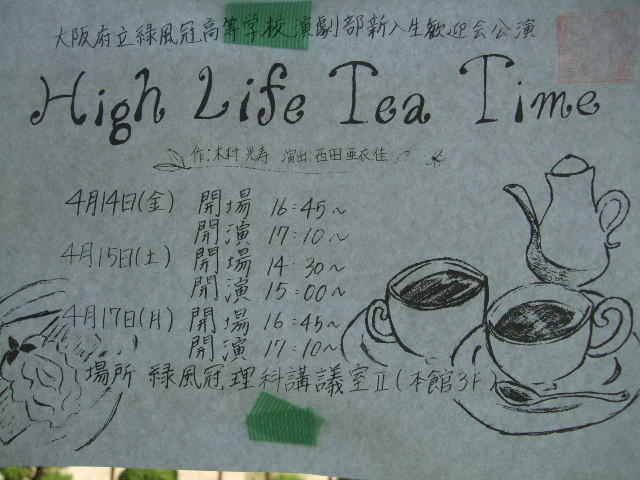 大阪府立緑風冠高等学校演劇部新入生歓迎会公演
High Life Tea Time
作:木村 光寿 演出:西田 亜衣佳
4月14日(金) 開場 16:45~
開演 17:10~
4月15日(土) 開場 14:30~
開演 15:00~
4月17日(月) 開場 16:45~
開演 17:10~
場所 緑風冠理科講議室Ⅱ(本館3F)